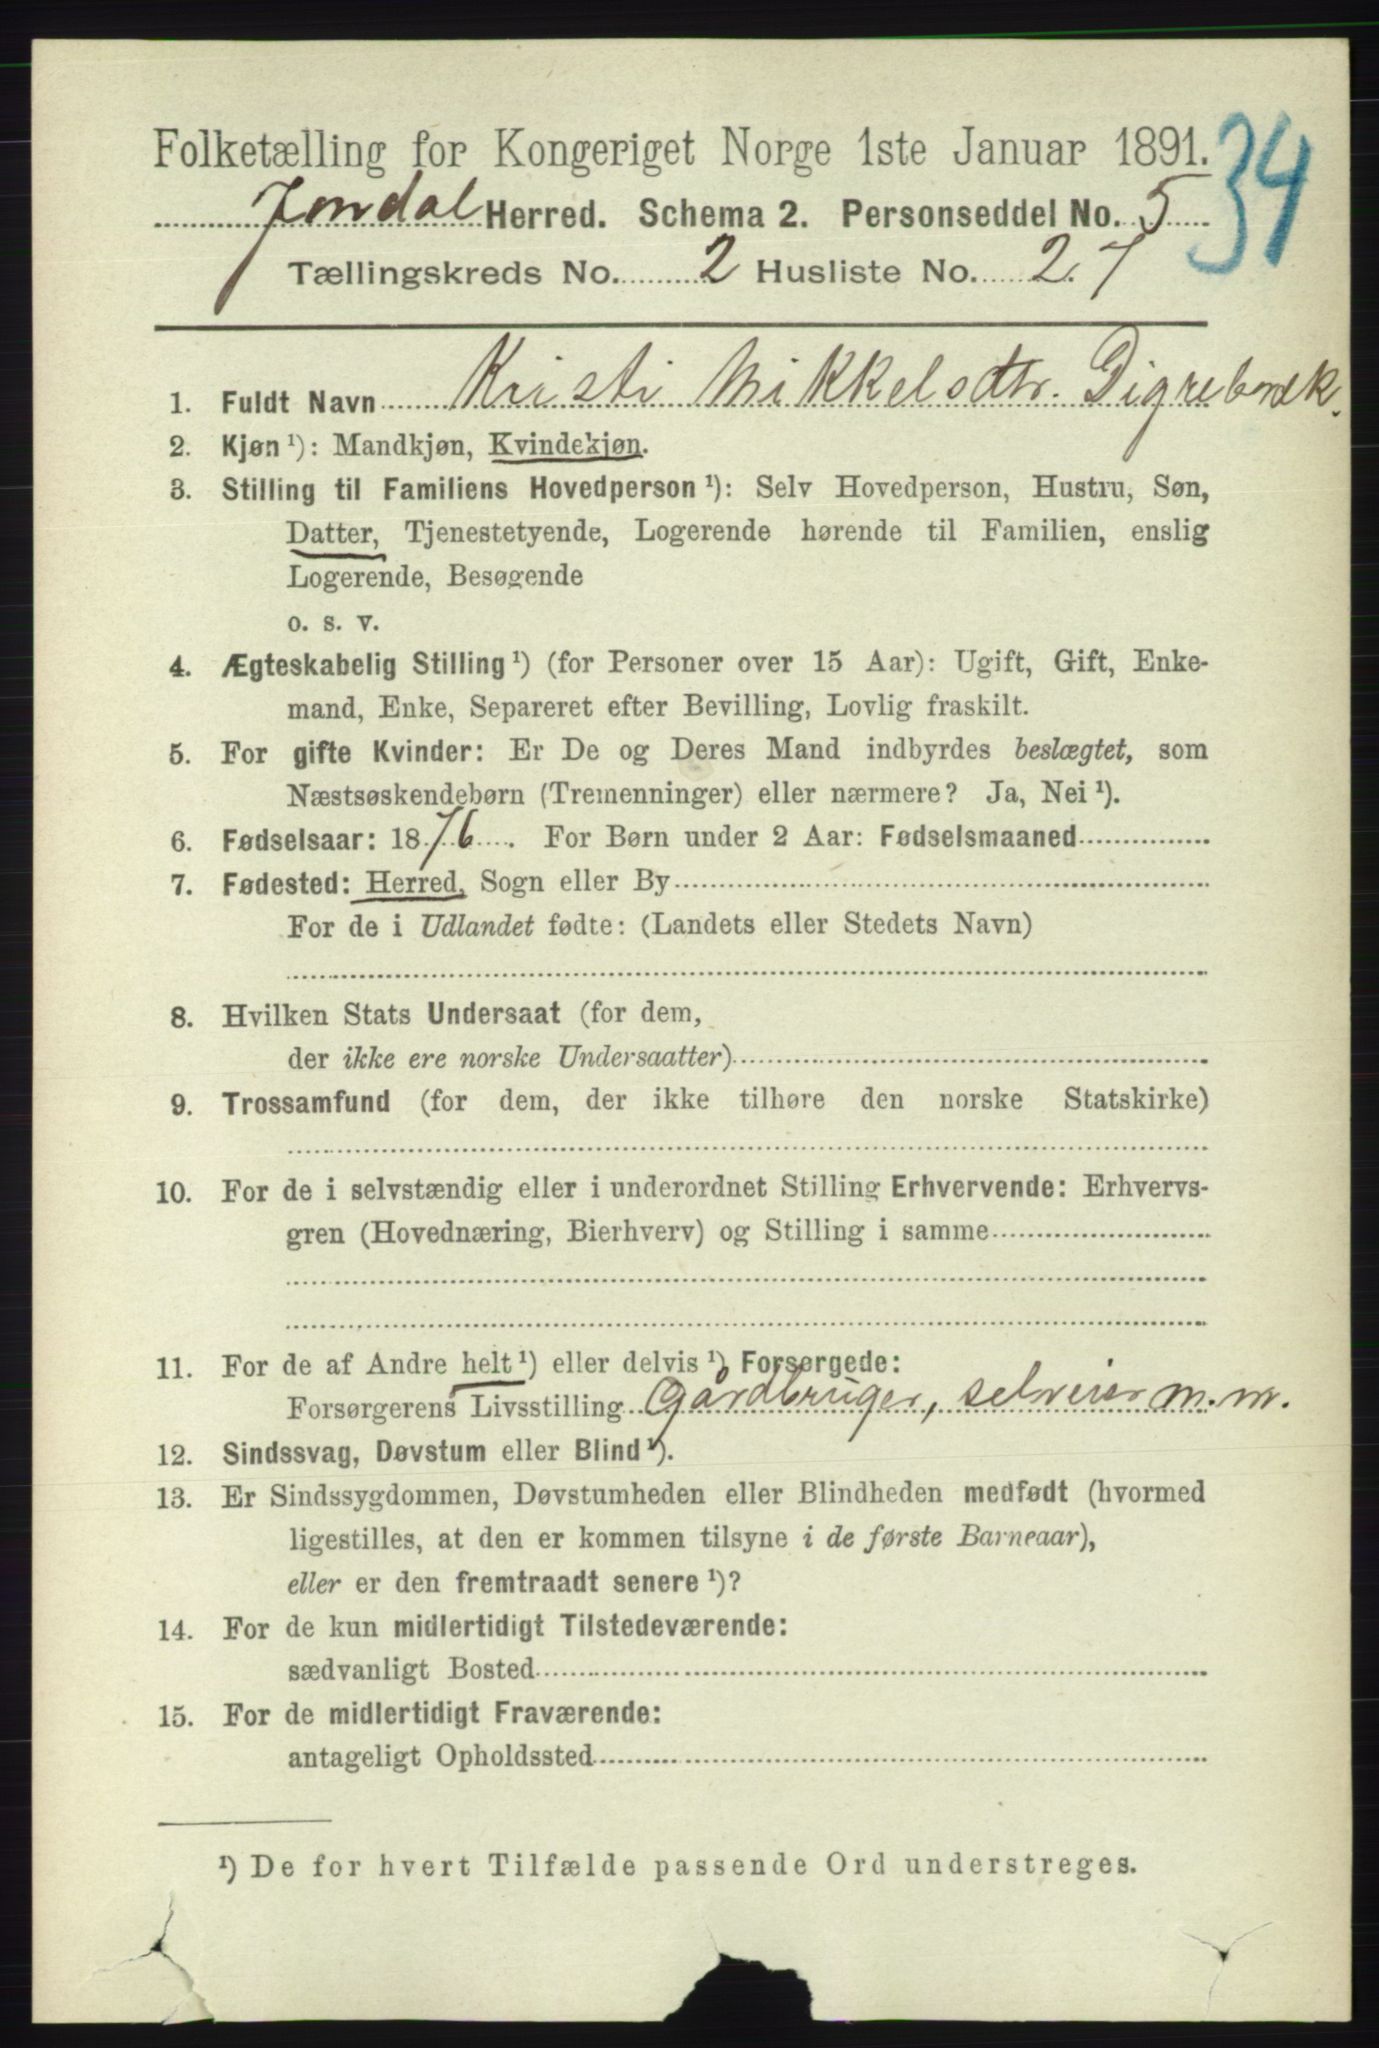 34
Folketælling for Kongeriget Norge 1ste Januar 1891.
Jondal Herred. Schema 2. Personseddel No. 5
Tællingskreds No. 2 Husliste No. 27
1. Fuldt Navn Kristi Mikkelsdtr. Digrebrekk.
2. Kjøn ¹): Mandkjøn, Kvindekjøn.
3. Stilling til Familiens Hovedperson ¹): Selv Hovedperson, Hustru, Søn,
Datter, Tjenestetyende, Logerende hørende til Familien, enslig
Logerende, Besøgende
o. s. v.
4. Ægteskabelig Stilling ¹) (for Personer over 15 Aar): Ugift, Gift, Enke-
mand, Enke, Separeret efter Bevilling, Lovlig fraskilt.
5. For gifte Kvinder: Er De og Deres Mand indbyrdes beslægtet, som
Næstsøskendebørn (Tremenninger) eller nærmere? Ja, Nei ¹).
6. Fødselsaar: 1876. For Børn under 2 Aar: Fødselsmaaned
7. Fødested: Herred, Sogn eller By
For de i Udlandet fødte: (Landets eller Stedets Navn)
8. Hvilken Stats Undersaat (for dem,
der ikke ere norske Undersaatter)
9. Trossamfund (for dem, der ikke tilhøre den norske Statskirke)
10. For de i selvstændig eller i underordnet Stilling Erhvervende: Erhvervs-
gren (Hovednæring, Bierhverv) og Stilling i samme
11. For de af Andre helt ¹) eller delvis ¹) Forsørgede:
Forsørgerens Livsstilling Gårdbruger, selveier m.m.
12. Sindssvag, Døvstum eller Blind ¹).
13. Er Sindssygdommen, Døvstumheden eller Blindheden medfødt (hvormed
ligestilles, at den er kommen tilsyne i de første Barneaar),
eller er den fremtraadt senere ¹)?
14. For de kun midlertidigt Tilstedeværende:
sædvanligt Bosted
15. For de midlertidigt Fraværende:
antageligt Opholdssted
¹) De for hvert Tilfælde passende Ord understreges.